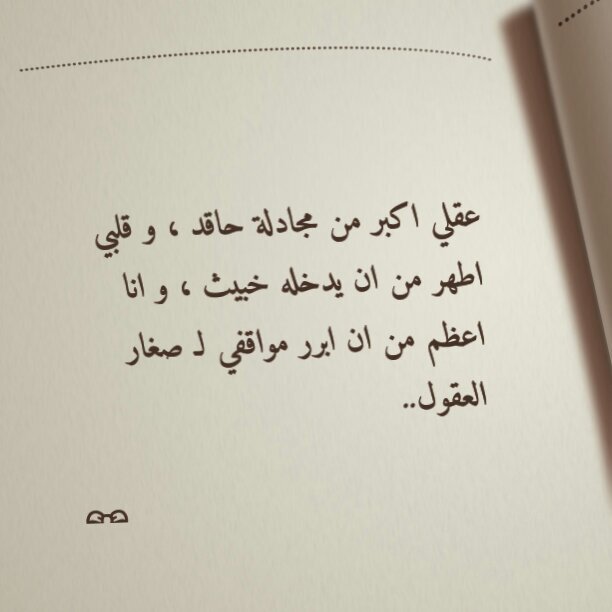 عقلي اكبر من مجادلة حاقد ، و قلبي
اطهر من ان يدخله خبيث ، و انا
اعظم من ان ابرر مواقفي لـ صغار
العقول..